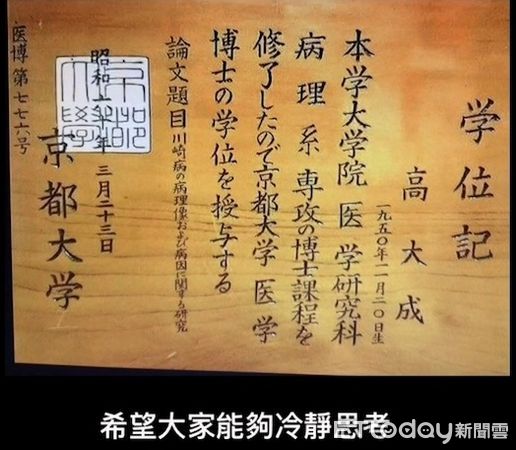 学位記
高大成
一九五〇年一一月二〇日生
本学大学院医学研究科
病理系専攻の博士課程を
修了したので京都大学医学
博士の学位を授与する
論文題目 川崎病の病理像および病因に関する研究
昭和 年 三月二十三日
京都大学
医博第七七六号
希望大家能夠冷靜思考
ETtoday新聞雲